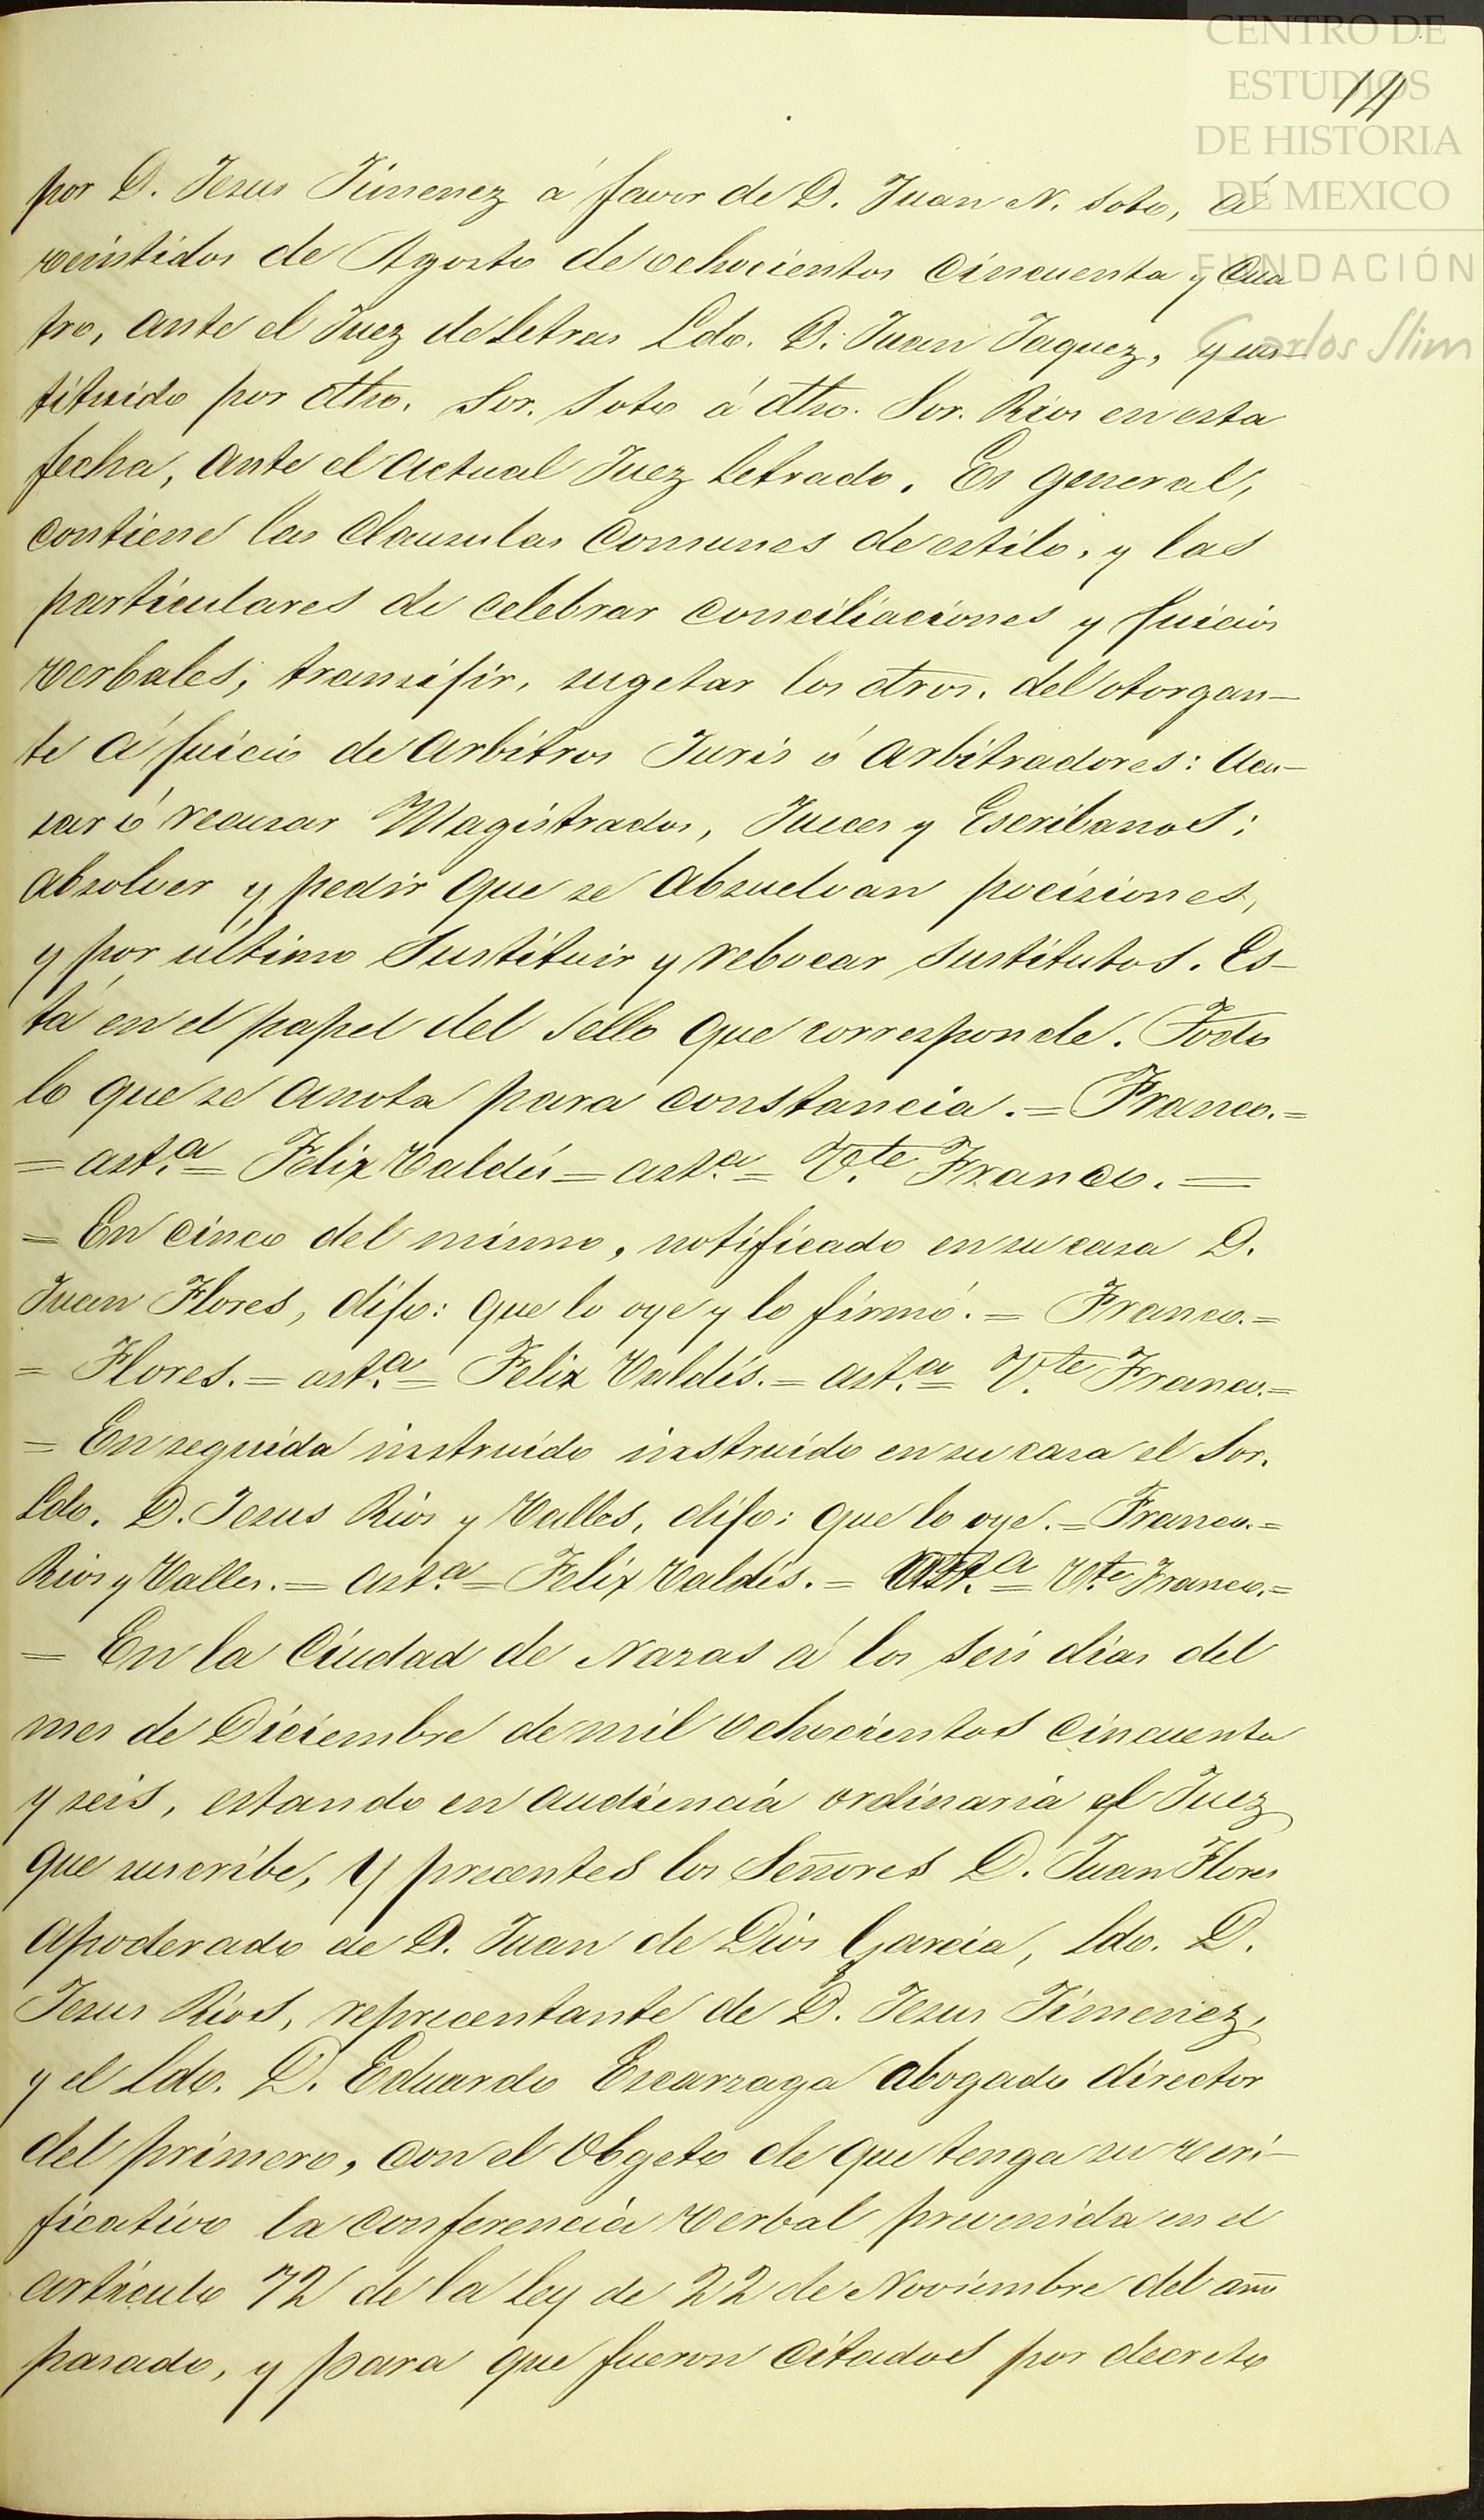 CENTRO DE
ESTUDIOS
DE HISTORIA
DE MEXICO
FUNDACIÓN
Carlos Slim
14
por D. Jesus Jimenez á favor de D. Juan N. Soto, á
veintidos de Agosto de ochocientos cincuenta y cua
tro, ante el Juez de letras Ldo. D. Juan Jaquez, y sus-
tituido por dho. Sor. Soto á dho. Sor. Rios en esta
fecha, ante el actual Juez letrado. Es general,
contiene las clausulas comunes de estilo, y las
particulares de celebrar conciliaciones y juicios
verbales; transijir, sugetar los dros. del otorgan-
te á juicio de arbitros Juris ó arbitradores: acu-
sar ó recusar Magistrados, Jueces y Escribanos;
absolver y pedir que se absuelvan pociziones,
y por último sustituir y rebocar sustitutos. Es-
tá en el papel del sello que corresponde. Todo
lo que se anota para constancia. = Franco. =
= ast.ª = Felix Valdés = ast.ª = V.te Franco. =
= En cinco del mismo, notificado en su casa D.
Juan Flores, dijo: que lo oye y lo firmó. = Franco. =
= Flores. = ast.ª = Felix Valdés. = ast.ª = V.te Franco. =
= En seguida instruido instruido en su casa el Sor.
Ldo. D. Jesus Rios y Valles, dijo: que lo oye. = Franco. =
Rios y Valles. = ast.ª = Felix Valdés. = ast.ª = V.te Franco. =
= En la Ciudad de Nazas á los seis dias del
mes de Diciembre de mil ochocientos cincuenta
y seis, estando en audiencia ordinaria el Juez
que suscribe, y precentes los Señores D. Juan Flores
apoderado de D. Juan de Dios Garcia, Ldo. D.
Jesus Rios, reprecentante de D. Jesus Jimenez,
y el Ldo. D. Eduardo Escarzaga abogado director
del primero, con el obgeto de que tenga su veri-
ficativo la conferencia verbal prevenida en el
articulo 72 de la ley de 22 de Noviembre del año
pasado, y para que fueron citados por decreto